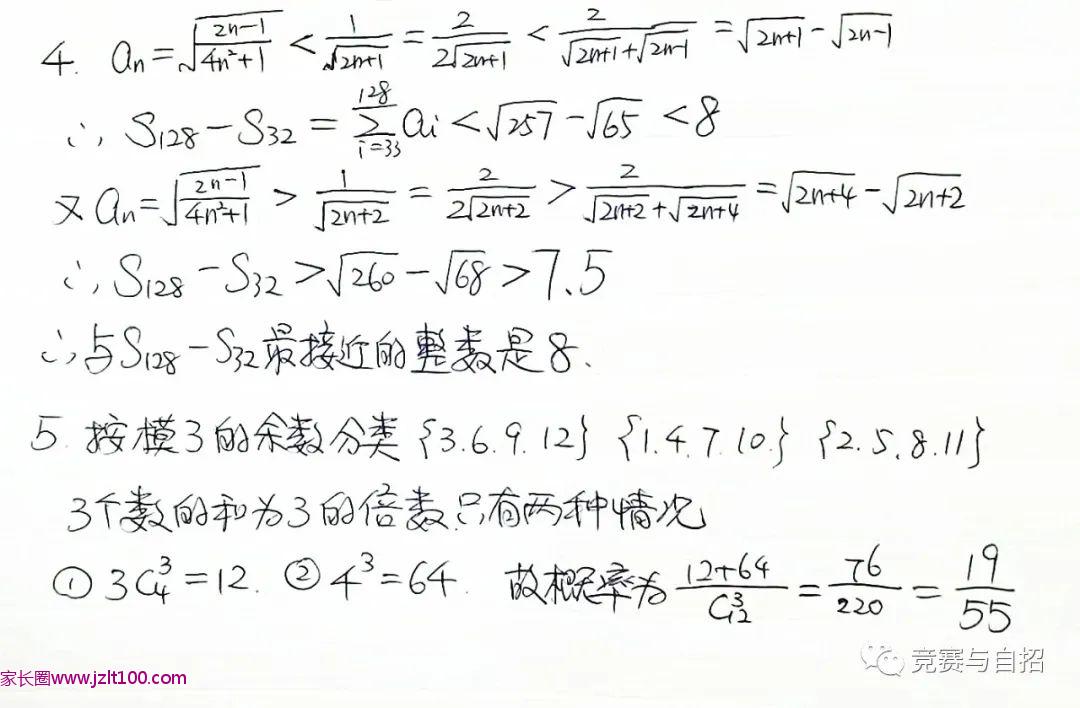 4. aₙ=√((2n-1)/(4n²+1)) < 1/√(2n+1) = 2/(2√(2n+1)) < 2/(√(2n+1)+√(2n-1)) = √(2n+1)-√(2n-1)
∴ S₁₂₈-S₃₂ = ∑_{i=33}^{128} aᵢ < √257-√65 < 8
又 aₙ=√((2n-1)/(4n²+1)) > 1/√(2n+2) = 2/(2√(2n+2)) > 2/(√(2n+2)+√(2n+4)) = √(2n+4)-√(2n+2)
∴ S₁₂₈-S₃₂ > √260-√68 > 7.5
∴ 与S₁₂₈-S₃₂最接近的整数是8.
5. 按模3的余数分类 {3.6.9.12} {1.4.7.10.} {2.5.8.11}
3个数的和为3的倍数只有两种情况
① 3C₄³=12. ② 4³=64. 故概率为 (12+64)/C₁₂³ = 76/220 = 19/55
竞赛与自招
家长圈www.jzlt100.com